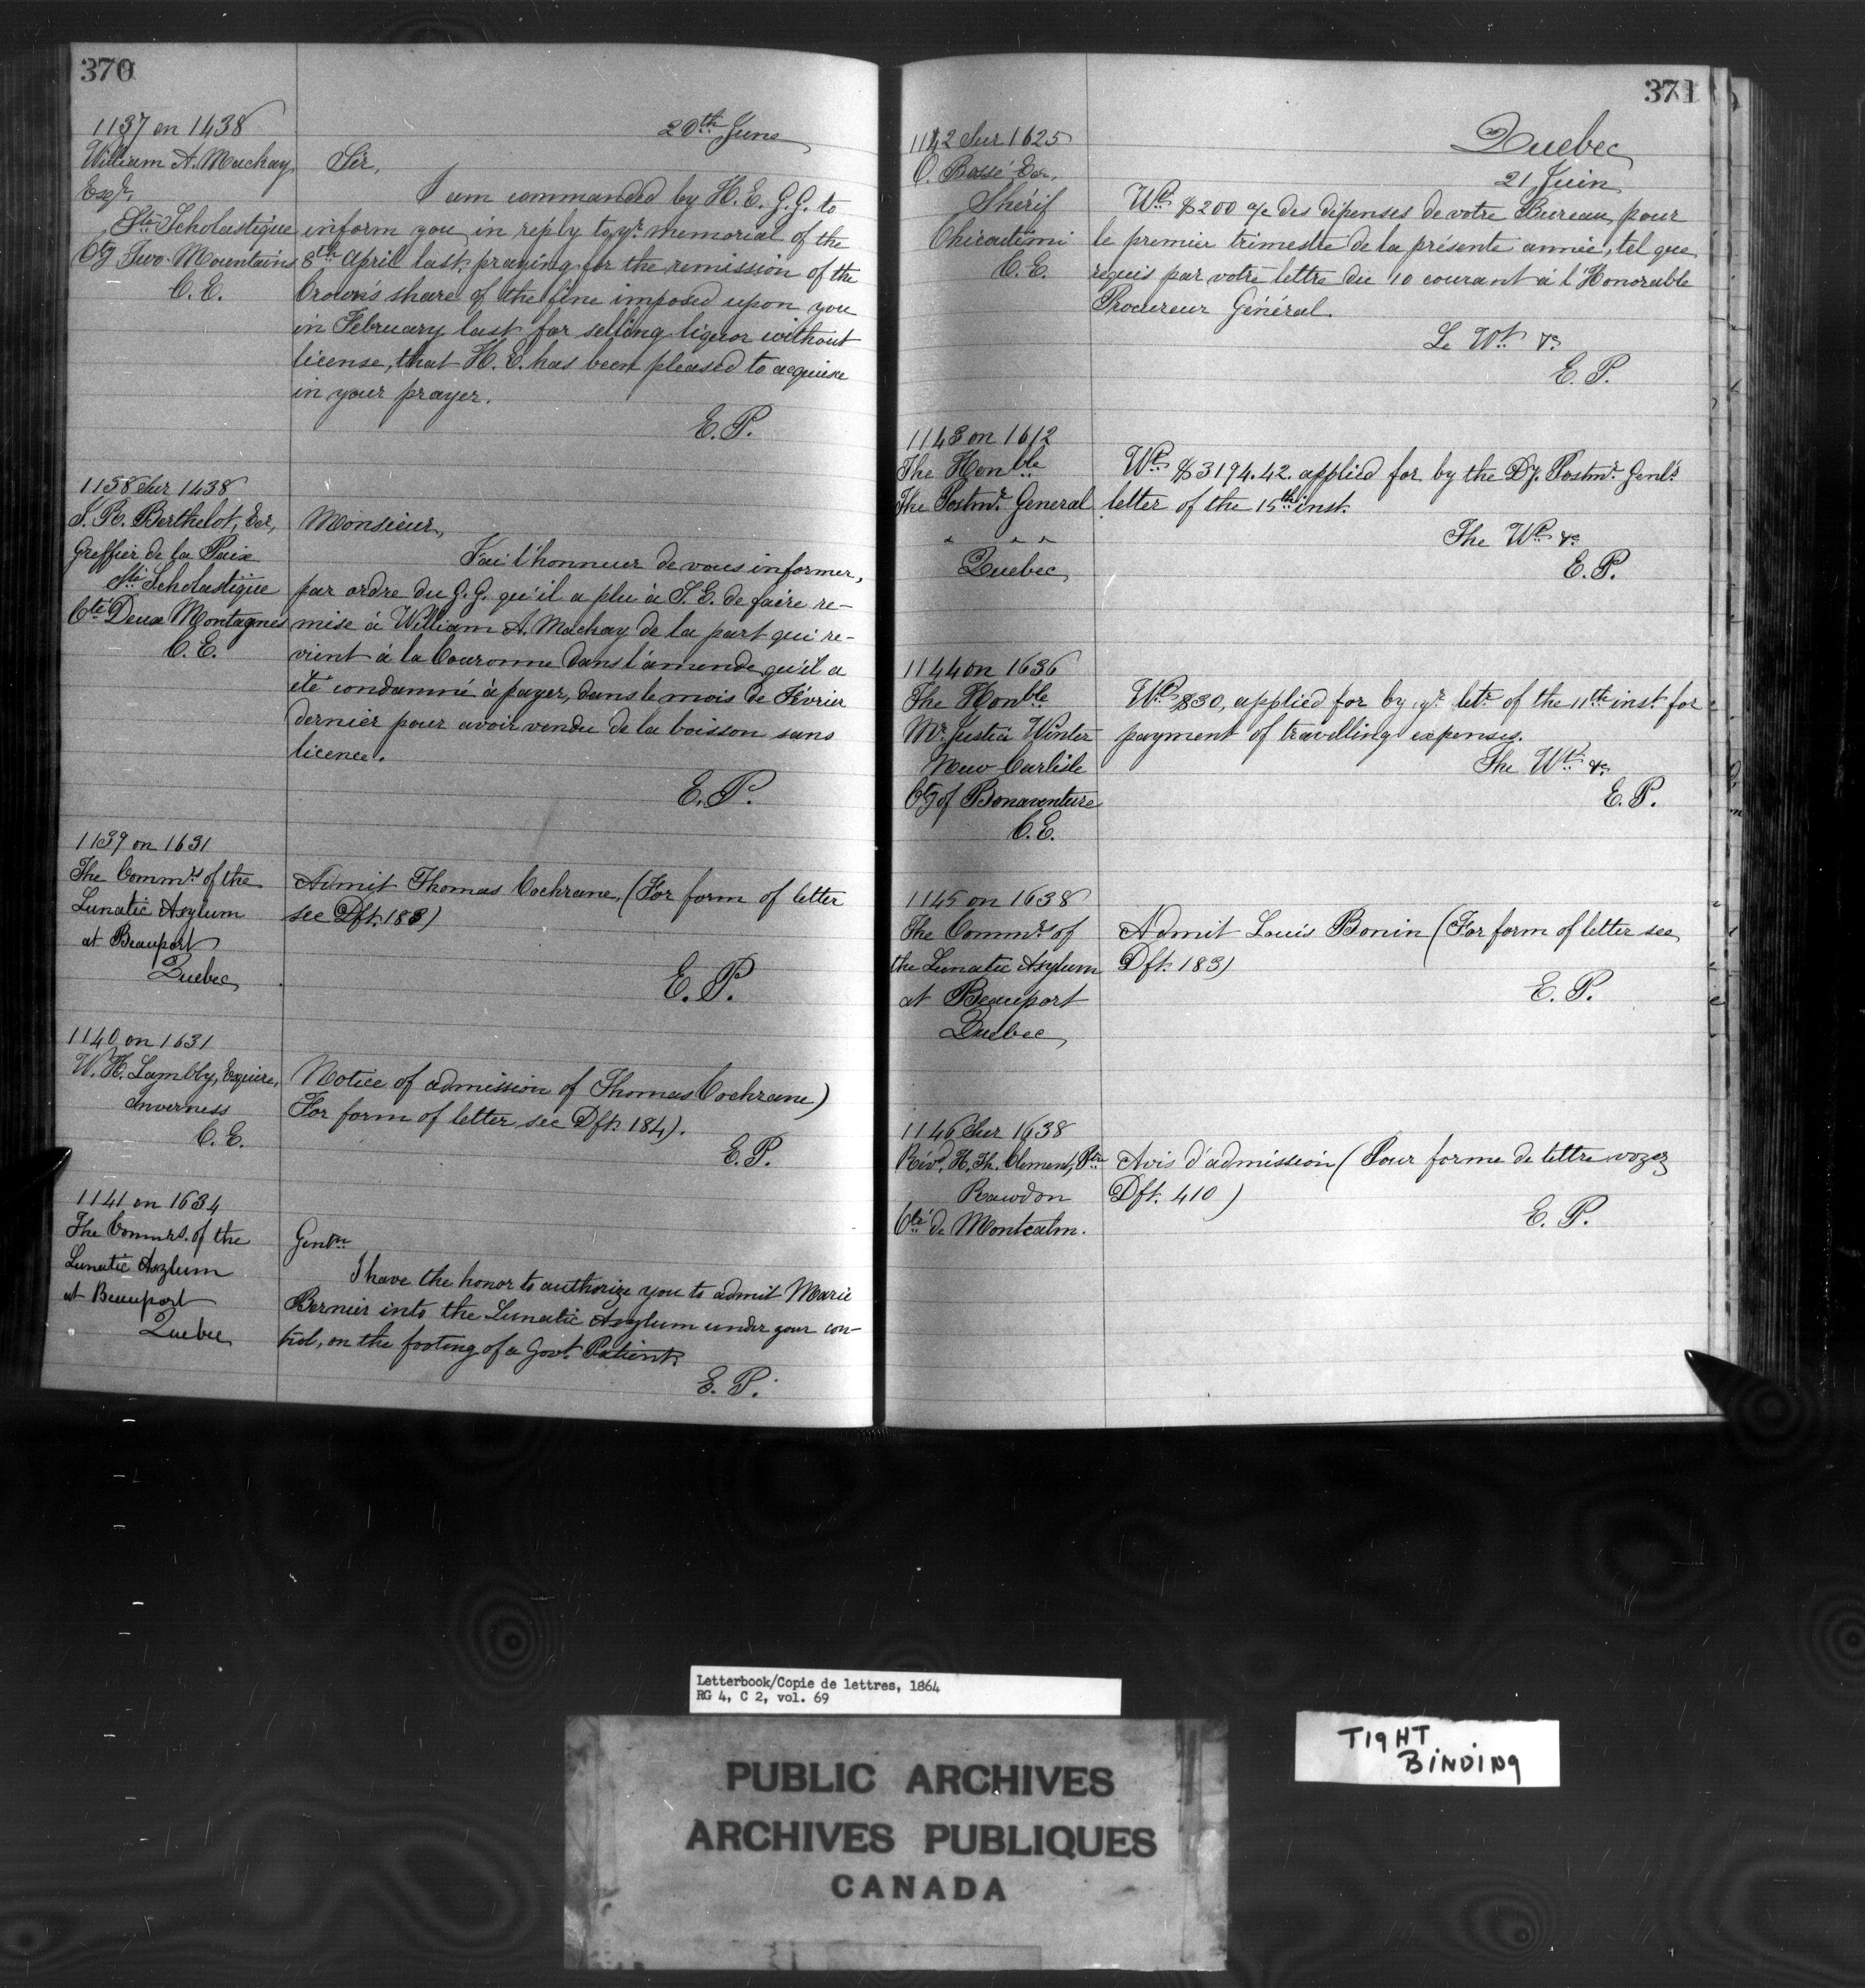 370
20th June
1137 on 1438
William A. Mackay,
Esqr.
Ste Scholastique
Cty Two Mountains
C. E.
Sir,
I am commanded by H. E. G. G. to
inform you in reply to yr. memorial of the
8th April last, praying for the remission of the
Crown's share of the fine imposed upon you
in February last for selling liquor without
license, that H. E. has been pleased to acquiesce
in your prayer.
E. P.
1158 Sur 1438
J. R. Berthelot, Ecr,
Greffier de la Paix
Ste Scholastique
Cté Deux Montagnes
C. E.
Monsieur,
J'ai l'honneur de vous informer,
par ordre du G. G. qu'il a plu à S. E. de faire re-
mise à William A. Mackay de la part qui re-
vient à la Couronne dans l'amende qu'il a
été condamné à payer, dans le mois de Février
dernier pour avoir vendu de la boisson sans
licence.
E. P.
1139 on 1631
The Commrs of the
Lunatic Asylum
at Beauport
Quebec
Admit Thomas Cochrane, (For form of letter
see Dft. 183)
E. P.
1140 on 1631
W. H. Lambly, Esquire,
Inverness
C. E.
Notice of admission of Thomas Cochrane)
For form of letter see Dft. 184).
E. P.
1141 on 1634
The Commrs. of the
Lunatic Asylum
at Beauport
Quebec
Gentn
I have the honor to authorize you to admit Marie
Bernier into the Lunatic Asylum under your con-
trol, on the footing of a Govt. Patient.
E. P.
371
Quebec
21 Juin
1142 Sur 1625
O. Bossé Ecr,
Shérif
Chicoutimi
C. E.
Wt. $200 a/c des dépenses de votre Bureau, pour
le premier trimestre de la présente année, tel que
requis par votre lettre du 10 courant à l'Honorable
Procureur Général.
Le Wt. &c
E. P.
1143 on 1612
The Honble
The Postmr. General
" " "
Quebec
Wt. $3194.42. applied for by the Dy. Postmr. Genl's
letter of the 15th inst.
The Wt. &c
E. P.
1144 on 1636
The Honble
Mr. Justice Winter
New Carlisle
Cty of Bonaventure
C. E.
Wt. $30, applied for by yr. letr. of the 11th inst for
payment of travelling expenses.
The Wt. &c
E. P.
1145 on 1638
The Commrs. of
the Lunatic Asylum
at Beauport
Quebec
Admit Louis Bonin (For form of letter see
Dft. 183)
E. P.
1146 Sur 1638
Révd. H. Th. Clement, Ptre
Rawdon
Cté de Montcalm.
Avis d'admission (Pour forme de lettre voyez
Dft. 410)
E. P.
Letterbook/Copie de lettres, 1864
RG 4, C 2, vol. 69
TIGHT
BINDING
PUBLIC ARCHIVES
ARCHIVES PUBLIQUES
CANADA